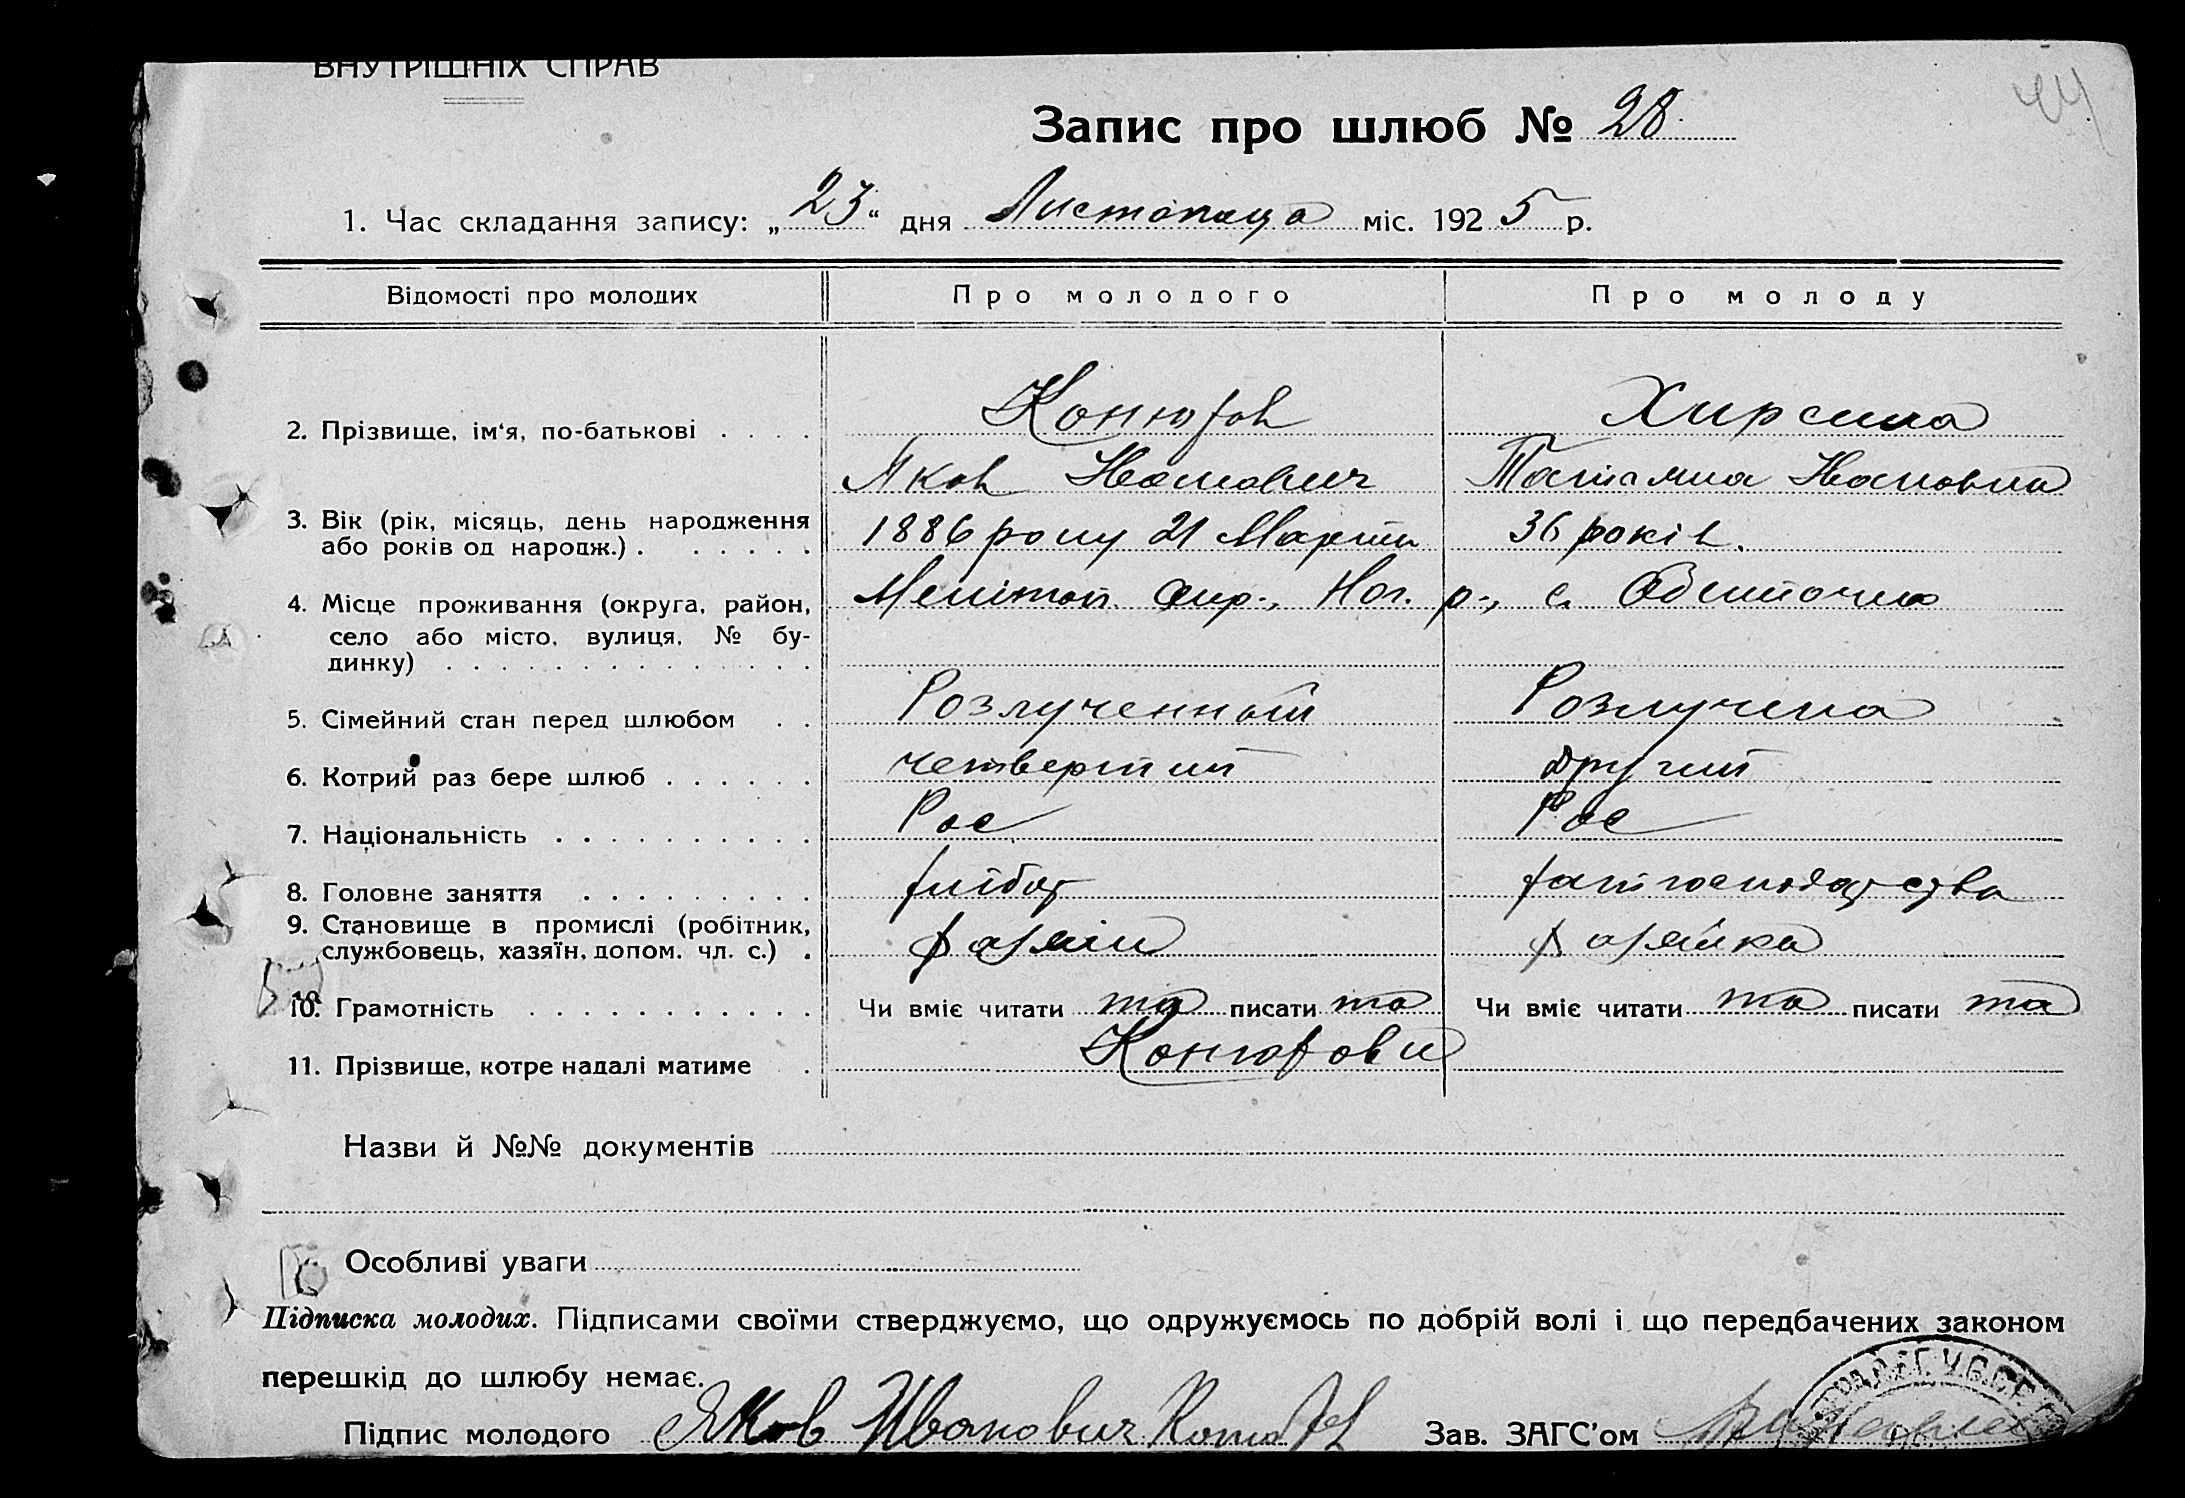 ВНУТРІШНІХ СПРАВ
Запис про шлюб № 28.
1. Час складання запису: „23“ дня Листопада міс. 1925 р.
Відомості про молодих Про молодого Про молоду
2. Прізвище, ім'я, по-батькові . . . . Конюхов Хирсина
Яков Иванович Татіанна Ивановна
3. Вік (рік, місяць, день народження
або років од народж.) . . . . . . . 1886 року 21 Марта 36 років.
4. Місце проживання (округа, район, Мелітоп. окр., Ног. р., с.
село або місто, вулиця, № бу-
динку) . . . . . . . . . . . . . .
5. Сімейний стан перед шлюбом . . Розлученный Розлучена
6. Котрий раз бере шлюб . . . . . . четвертий другий
7. Національність . . . . . . . . . . Рос Рос
8. Головне заняття . . . . . . . . . хлібор
9. Становище в промислі (робітник,
службовець, хазяїн, допом. чл. с.) . хазяін хазяйка
10. Грамотність . . . . . . . . . . . Чи вміє читати та писати та Чи вміє читати та писати та
11. Прізвище, котре надалі матиме . Конюхови
Назви й №№ документів
Особливі уваги
Підписка молодих. Підписами своїми стверджуємо, що одружуємось по добрій волі і що передбачених законом
перешкід до шлюбу немає.
Підпис молодого Яков Иванович Зав. ЗАГС'ом